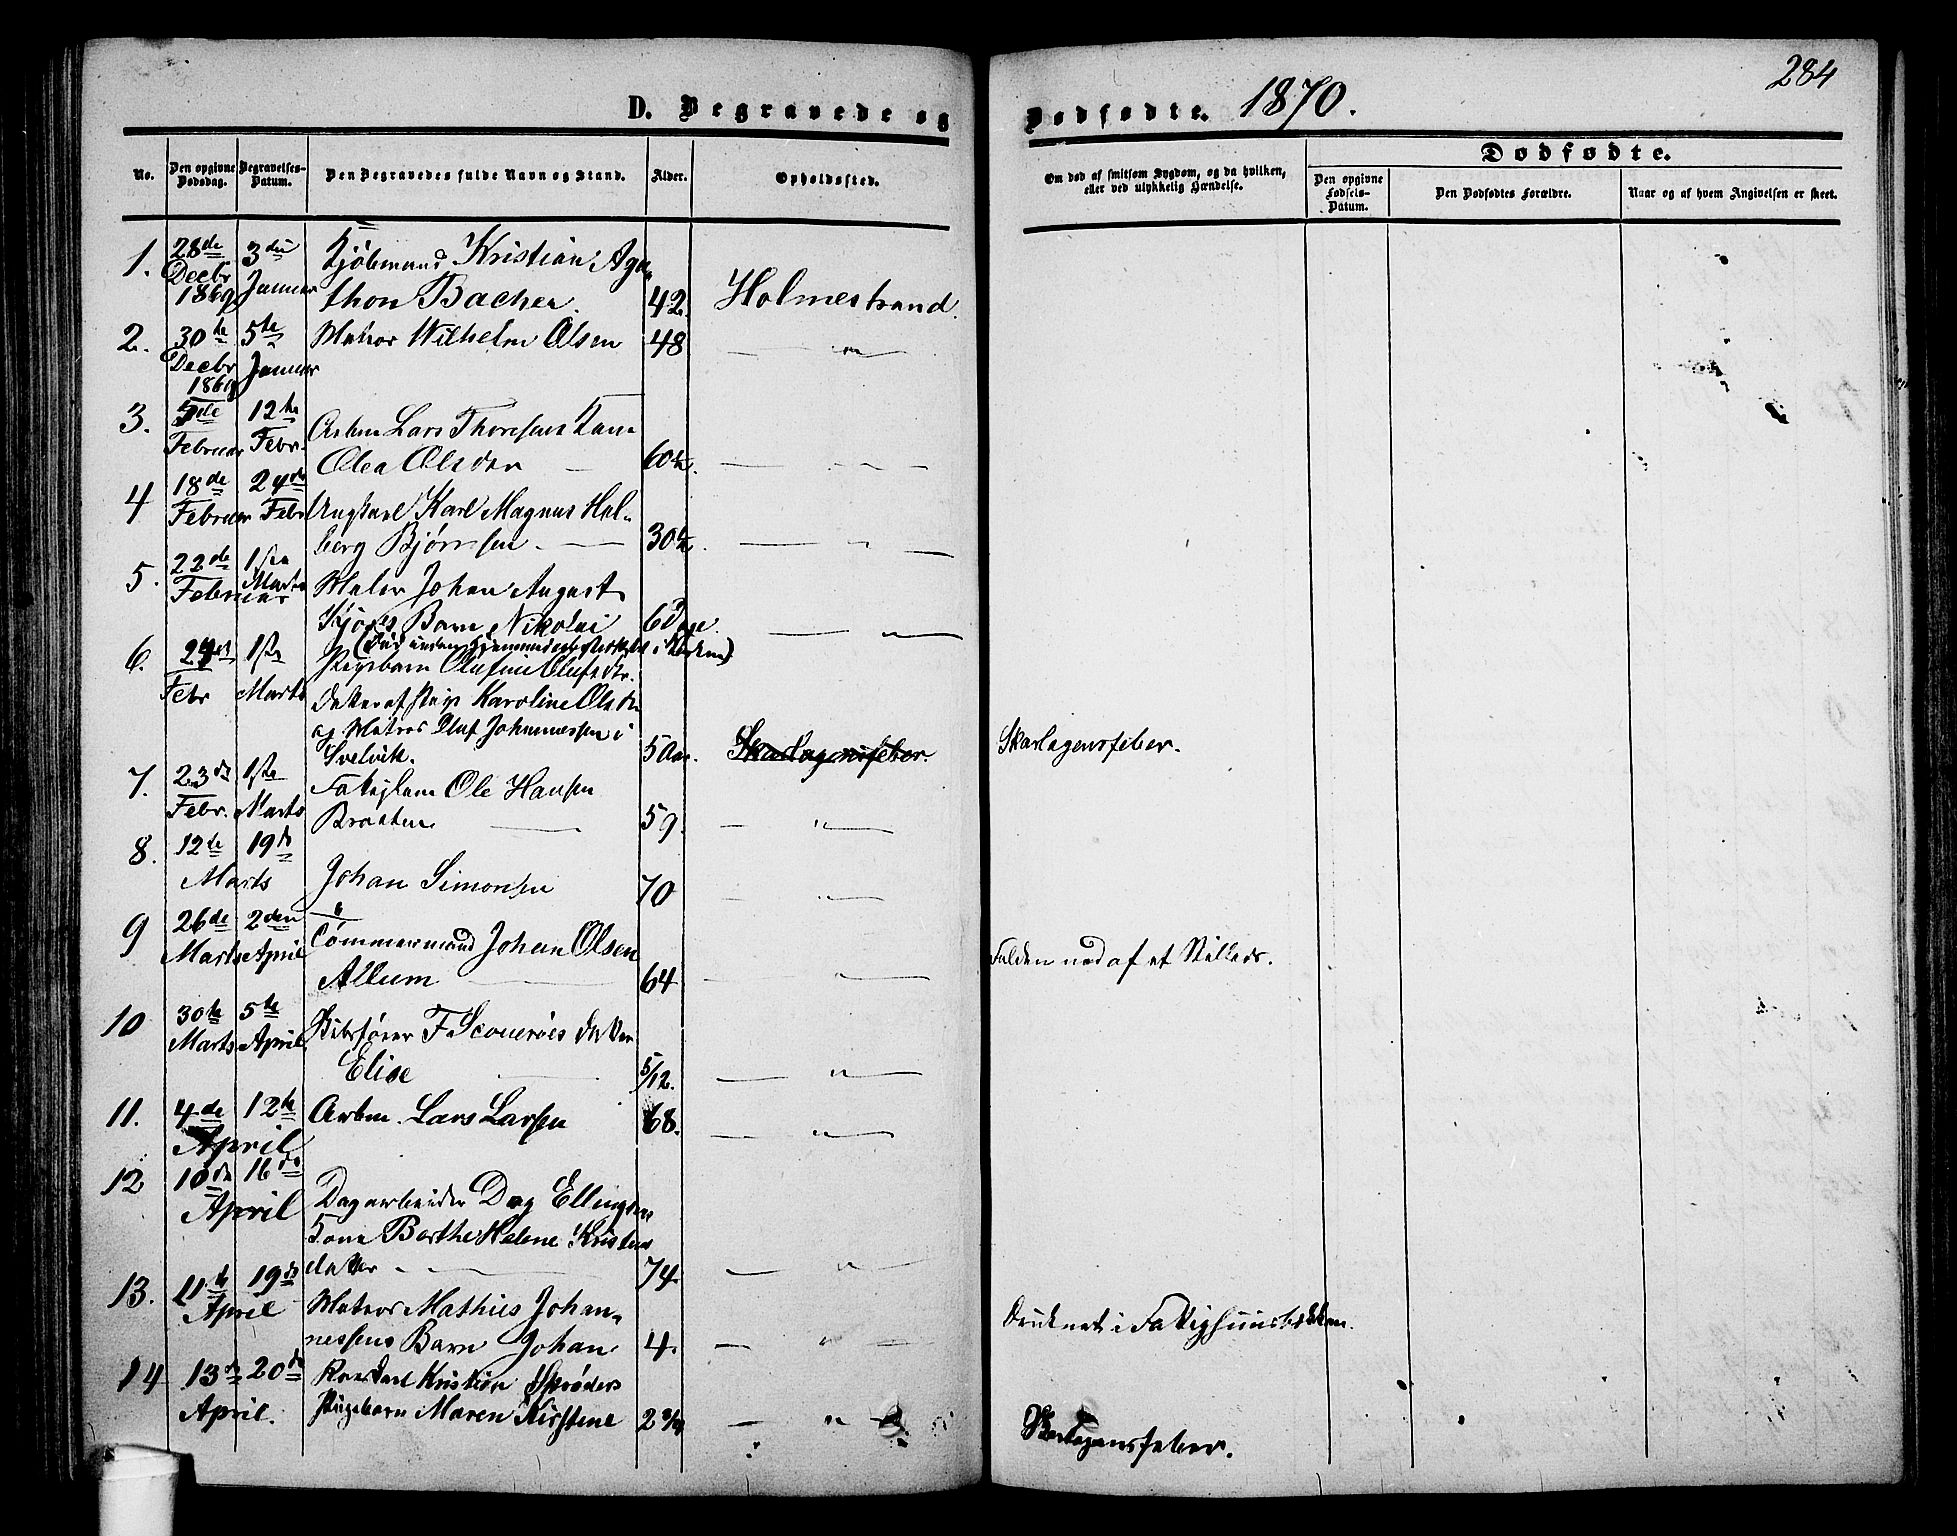 284
D. Begravede og Dødfødte. 1870.
No.
Den opgivne Dødsdag.
Begravelses-Datum.
Den Begravedes fulde Navn og Stand.
Alder.
Opholdssted.
Om død af smitsom Sygdom, og da hvilken, eller ved ulykkelig Hændelse.
Dødfødte.
Den opgivne Fødsels-Datum.
Den Dødfødtes Forældre.
Naar og af hvem Angivelsen er skeet.
1. 28de 3die Kjøbmand Kristian Aga-
Decbr 1869 Januar thon Bacher. 42. Holmestrand.
2. 30te 5te Matros Wilhelm Olsen 48 — " —
Decbr 1869 Januar
3. 5de 12te Arbm Lars Thoresens Kone
Februar Febr. Olea Olsdtr — 60 — " —
4 18de 24de Ungkarl Karl Magnus Hol-
Februar Febr berg Bjørnsen — 30 — " —
5. 22de 1ste Maler Johan August
Februar Marts Barn Nikolai 6 Dage — " —
6. 24de 1ste Pigebarn Olufine Olufsdtr.
Febr Marts datter af Pige Karoline Olsdtr
og Matros Oluf Johannessen i
Svelvik. 5 Aar. Skarlagensfeber. Skarlagensfeber.
7. 23de 1ste Fattiglem Ole Hansen
Febr. Marts Braaten — 59. — " —
8. 12te 19de
Marts Johan Simonsen 70 — " —
9 26de 2den Tømmermand Johan Olsen
Marts April Allum — 64 — " — Falden ned af et Stillads.
10 30te 5te F. datter
Marts April Elise — 5/12. — " —
11. 4de 12te Arbm. Lars Larsen 68. — " —
April
12 10de 16de
April Dagarbeider Dag Ellingsens
Kone Berthe Helene Kristens
datter — 74 — " —
13. 11te 19de
April Matros Mathies Johan-
nessens Barn Johan 4. — " — Druknet i Fattighuusbækken.
14 13de 20de Kristian Skrøders
April. Pigebarn Maren Kirstine 2 3/4 — " — Skarlagensfeber.